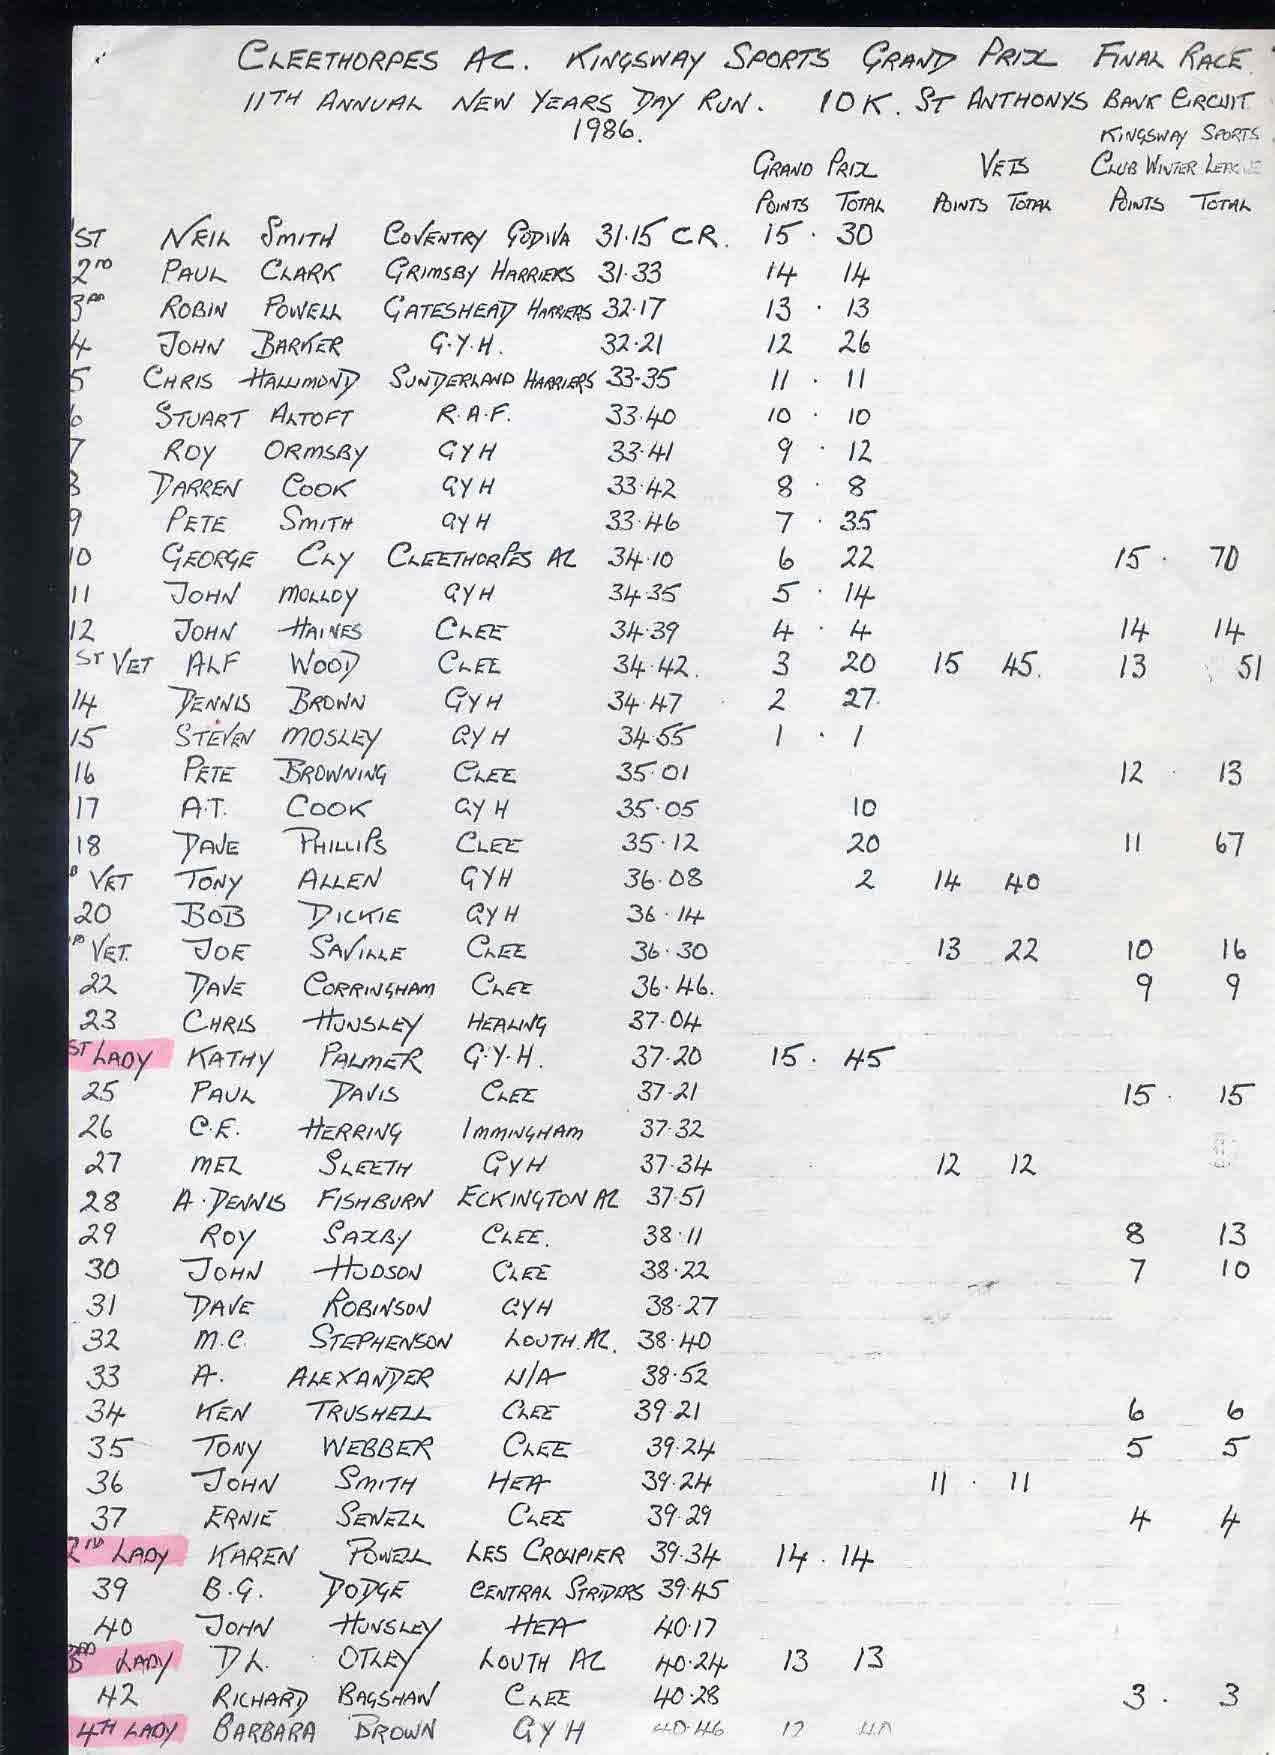 CLEETHORPES AC. KINGSWAY SPORTS GRAND PRIX FINAL RACE.
11TH ANNUAL NEW YEARS DAY RUN. 10K. ST ANTHONYS BANK CIRCUIT.
1986. KINGSWAY SPORTS
GRAND PRIX VETS CLUB WINTER LEAGUE
POINTS TOTAL POINTS TOTAL POINTS TOTAL
1ST NEIL SMITH COVENTRY GODIVA 31.15 C R. 15 . 30
2ND PAUL CLARK GRIMSBY HARRIERS 31.33 14 14
3RD ROBIN POWELL GATESHEAD HARRIERS 32.17 13 . 13
4 JOHN BARKER G.Y.H. 32.21 12 26
5 CHRIS HALLIMOND SUNDERLAND HARRIERS 33-35 11 . 11
6 STUART ALTOFT R.A.F. 33.40 10 . 10
7 ROY ORMSBY GYH 33.41 9 . 12
8 DARREN COOK GYH 33.42 8 . 8
9 PETE SMITH GYH 33.46 7 . 35
10 GEORGE CLY CLEETHORPES AC 34.10 6 22 15 . 70
11 JOHN MOLLOY GYH 34.35 5 . 14
12 JOHN HAINES CLEE 34.39 4 . 4 14 14
ST VET ALF WOOD CLEE 34.42. 3 20 15 45. 13 51
14 DENNIS BROWN GYH 34.47 2 27.
15 STEVEN MOSLEY GYH 34.55 1 . 1
16 PETE BROWNING CLEE 35.01 12 . 13
17 A.T. COOK GYH 35.05 10
18 DAVE PHILLIPS CLEE 35.12 20 11 67
VET TONY ALLEN GYH 36.08 2 14 40
20 BOB DICKIE GYH 36.14
VET. JOE SAVILLE CLEE 36.30 13 22 10 16
22 DAVE CORRINGHAM CLEE 36.46. 9 9
23 CHRIS HUNSLEY HEALING 37.04
ST LADY KATHY PALMER G.Y.H. 37.20 15 . 45
25 PAUL DAVIS CLEE 37.21 15 . 15
26 C.E. HERRING IMMINGHAM 37.32
27 MEL SLEETH GYH 37.34 12 12
28 A. DENNIS FISHBURN ECKINGTON AC 37.51
29 ROY SAXBY CLEE. 38.11 8 13
30 JOHN HUDSON CLEE 38.22 7 10
31 DAVE ROBINSON GYH 38.27
32 M.C. STEPHENSON LOUTH.AC. 38.40
33 A. ALEXANDER N/A 38.52
34 KEN TRUSHELL CLEE 39.21 6 6
35 TONY WEBBER CLEE 39.24 5 5
36 JOHN SMITH HEA 39.24 11 . 11
37 ERNIE SEWELL CLEE 39.29 4 4
2ND LADY KAREN POWELL LES CROUPIER 39.34 14 . 14
39 B.G. DODGE CENTRAL STRIDERS 39.45
40 JOHN HUNSLEY HEA 40.17
3RD LADY D L. OTLEY LOUTH AC 40.24 13 13
42 RICHARD BAGSHAW CLEE 40.28 3 . 3
4TH LADY BARBARA BROWN GYH 40.46 12 40